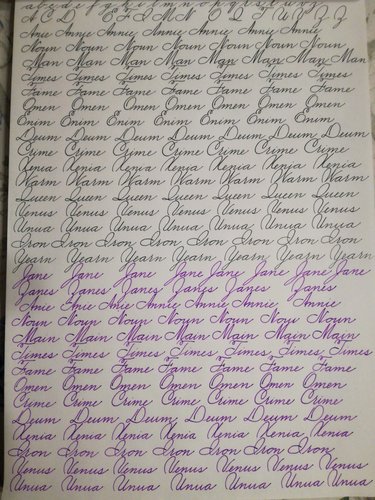 a b c d e f g h i j k l m n o p q r s t u v x y z
A C D E F I M N O Q T U V Z Z
Anie Annie Annie Annie Annie Annie Annie
Noun Noun Noun Noun Noun Noun Noun
Man Man Man Man Man Man Man Man
Times Times Times Times Times Times Times
Fame Fame Fame Fame Fame Fame Fame
Omen Omen Omen Omen Omen Omen Omen
Enim Enim Enim Enim Enim Enim Enim
Deum Deum Deum Deum Deum Deum Deum Deum
Crime Crime Crime Crime Crime Crime Crime
Xenia Xenia Xenia Xenia Xenia Xenia Xenia
Warm Warm Warm Warm Warm Warm Warm
Queen Queen Queen Queen Queen Queen Queen
Venus Venus Venus Venus Venus Venus Venus
Unua Unua Unua Unua Unua Unua Unua
Iron Iron Iron Iron Iron Iron Iron Iron
Yearn Yearn Yearn Yearn Yearn Yearn Yearn
Jane Jane Jane Jane Jane Jane Jane Jane
Janes Janes Janes Janes Janes Janes
Anie Enie Anie Annie Annie Annie Annie
Noun Noun Noun Noun Noun Noun Noun
Main Main Main Main Main Main Main
Times Times Times Times Times Times Times
Fame Fame Fame Fame Fame Fame Fame
Omen Omen Omen Omen Omen Omen Omen
Crime Crime Crime Crime Crime Crime Crime
Deum Deum Deum Deum Deum Deum
Xenia Xenia Xenia Xenia Xenia Xenia Xenia
Iron Iron Iron Iron Iron Iron Iron
Venus Venus Venus Venus Venus Venus Venus
Unua Unua Unua Unua Unua Unua Unua